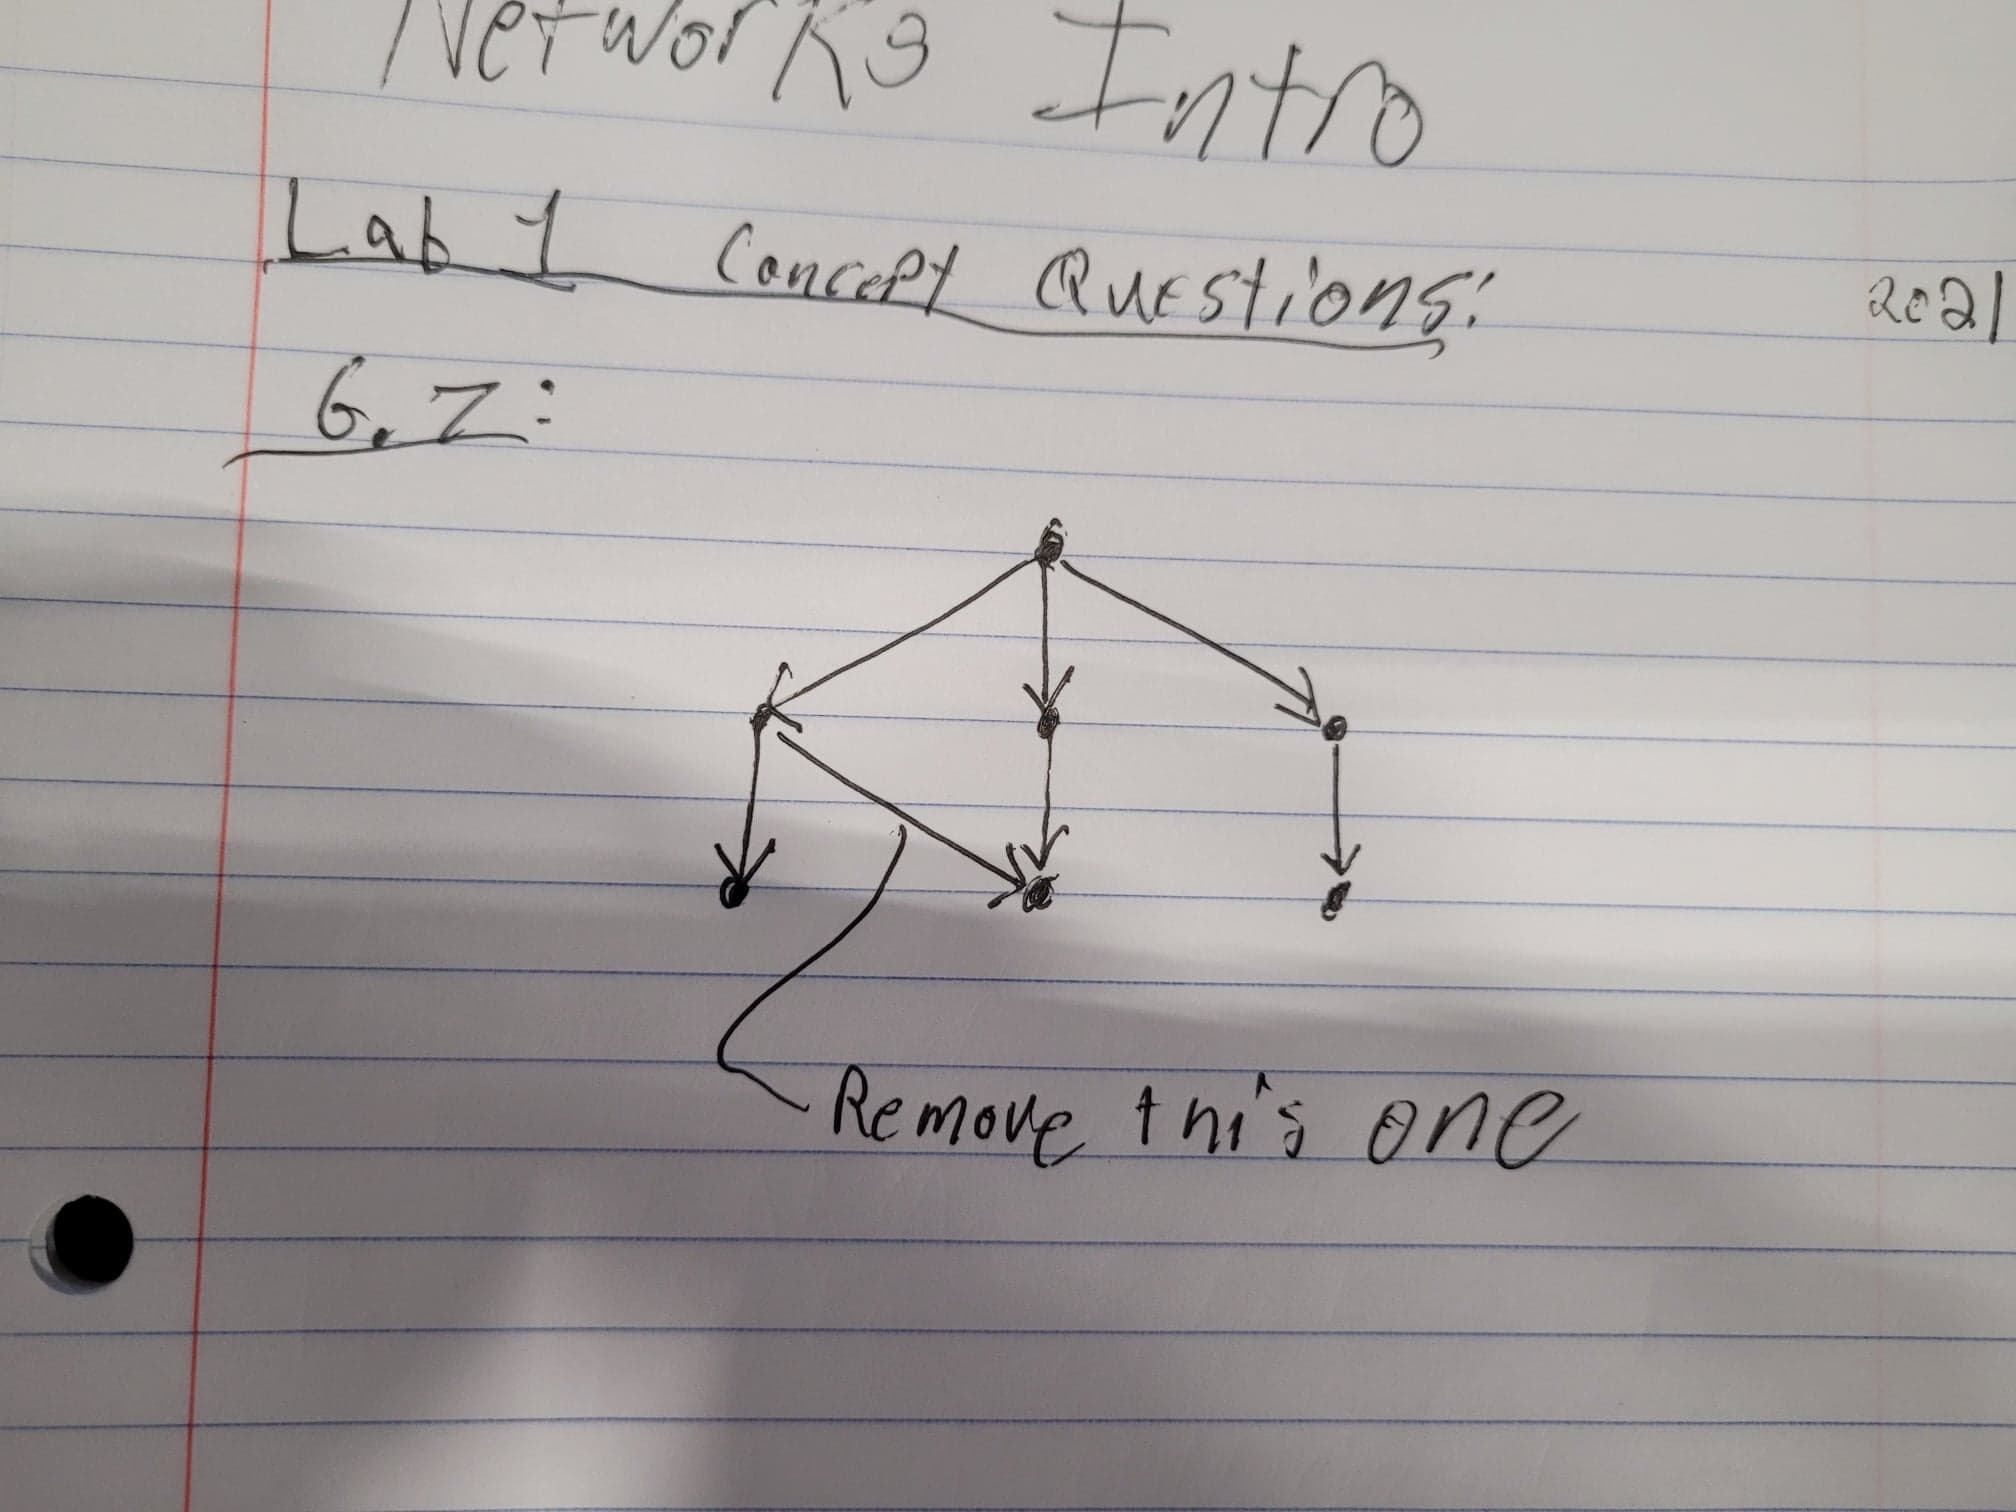 Networks Intro
Lab 1 Concept Questions: 2021
6.2:
Remove this one